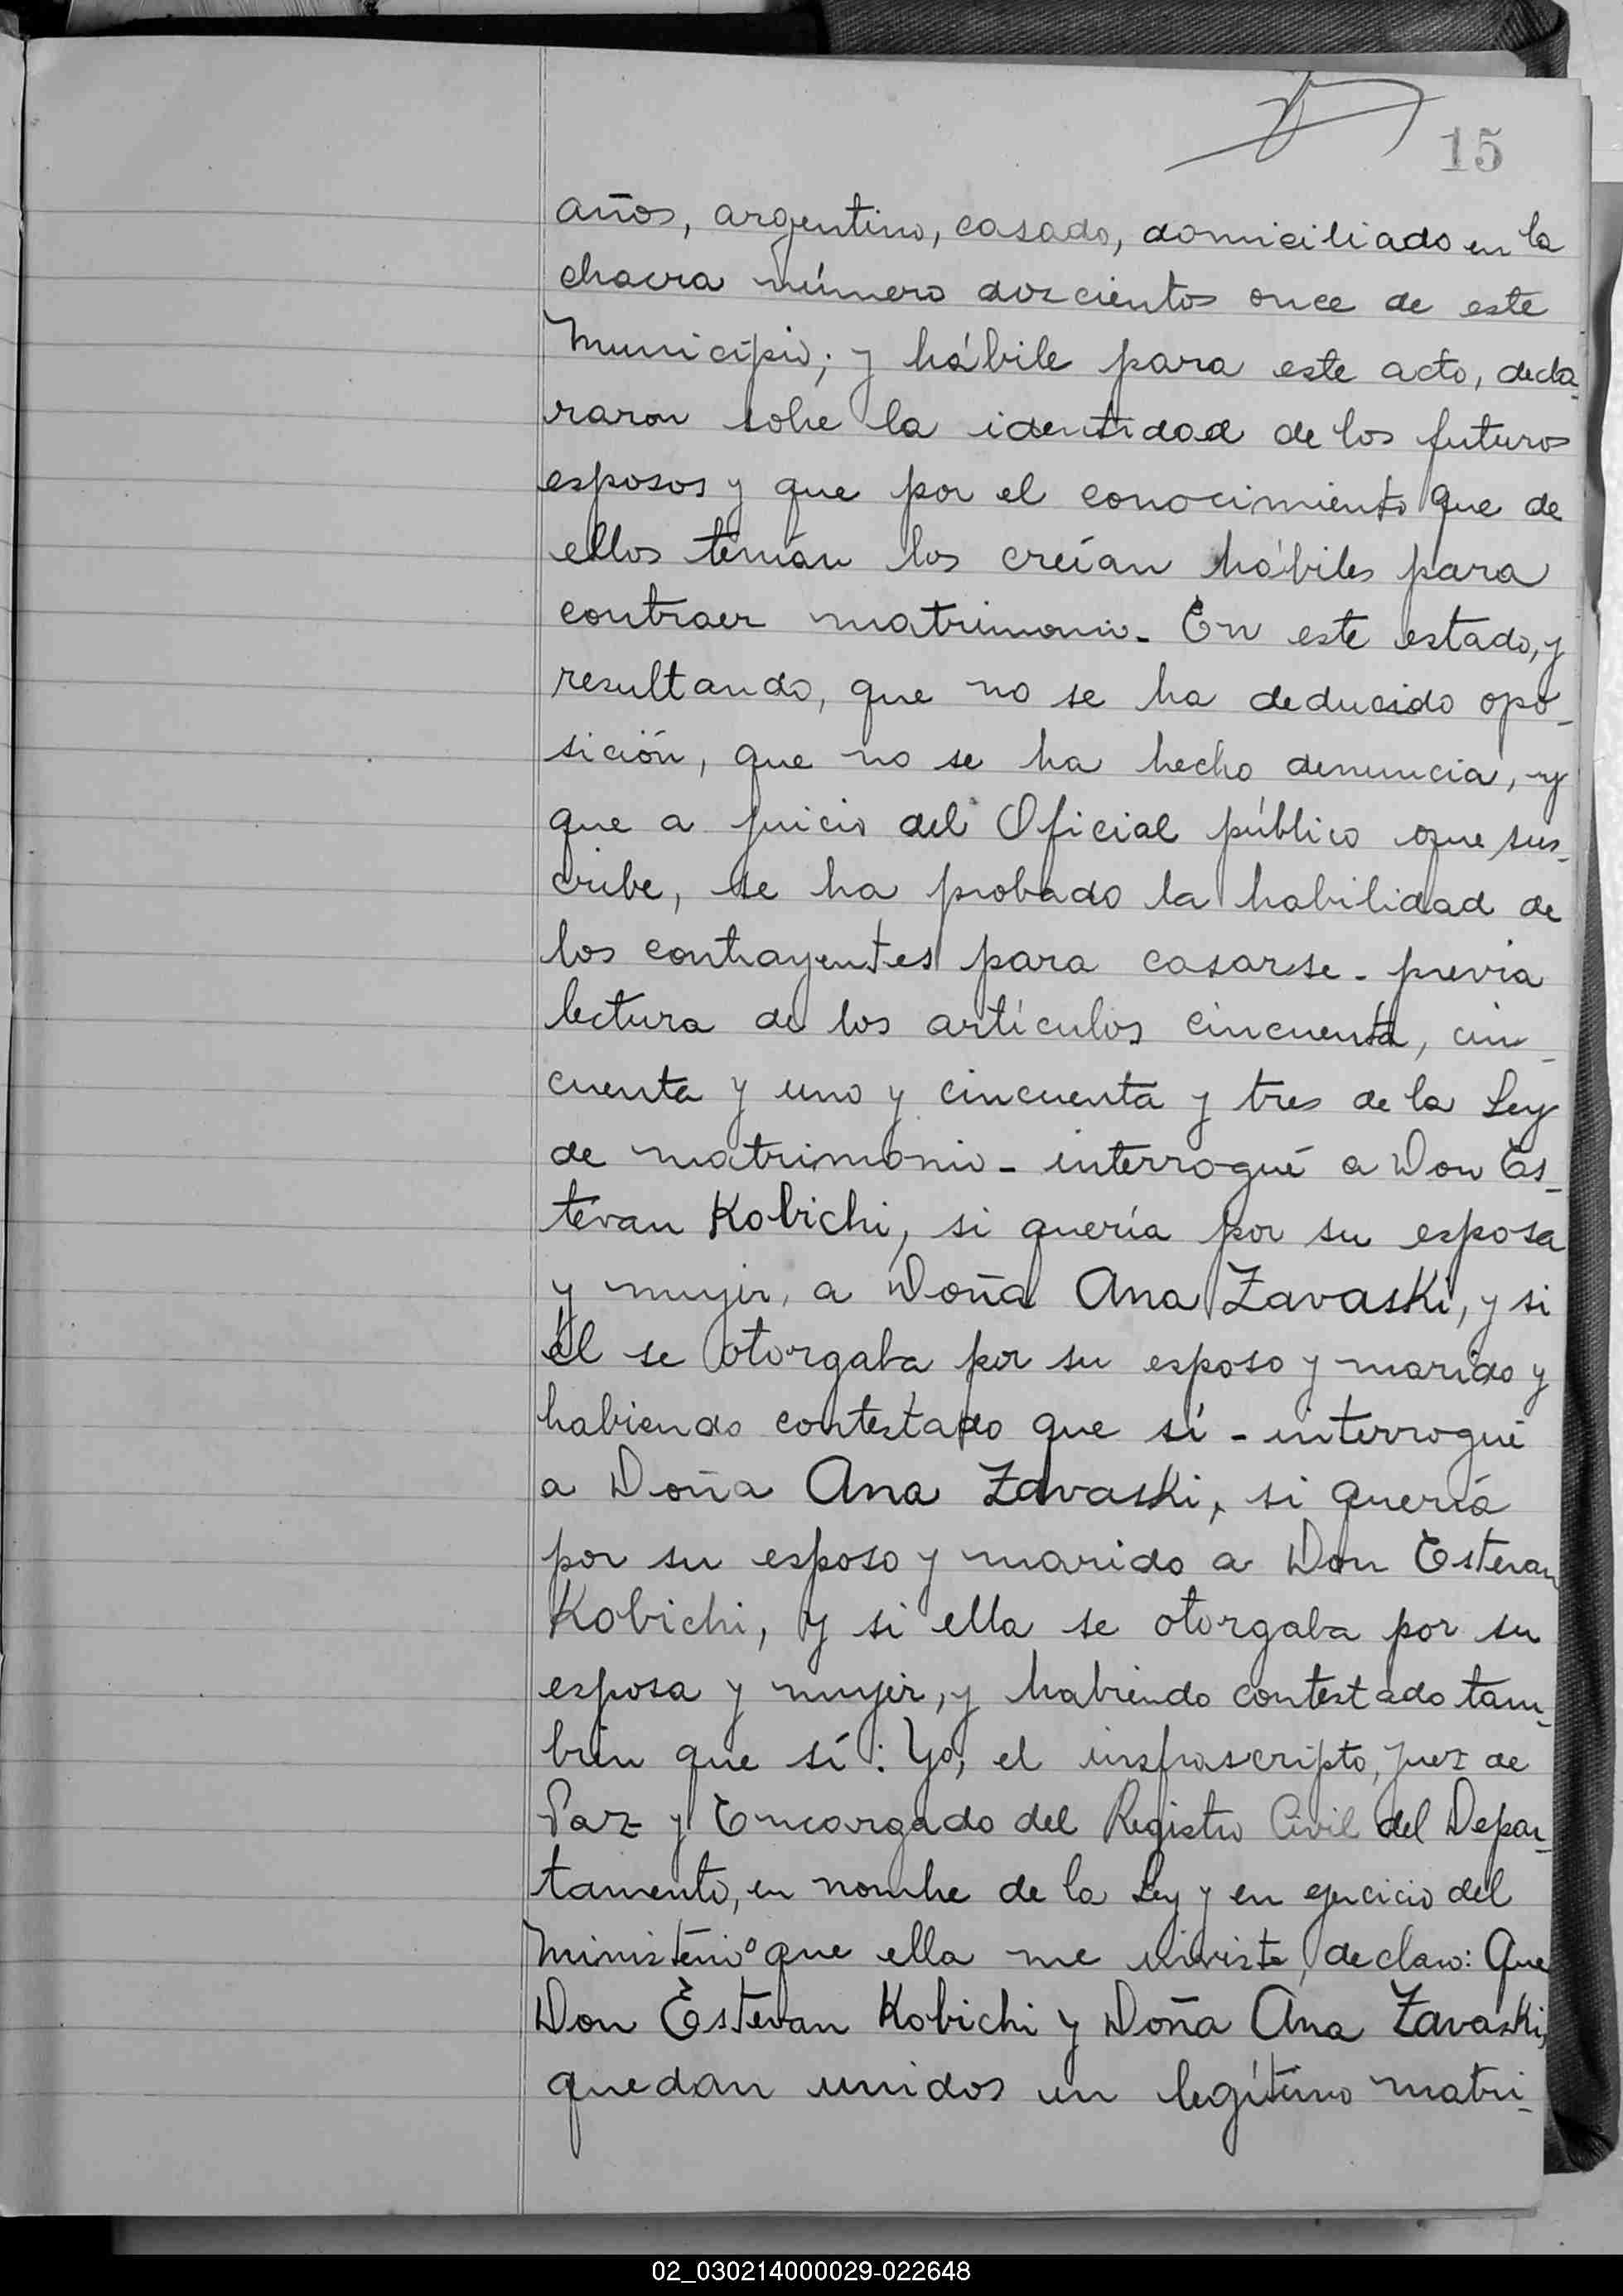 15
años, argentino, casado, domiciliado en la
chacra número doscientos once de este
Municipio; y hábile para este acto, decla-
raron sobre la identidad de los futuros
esposos y que por el conocimiento que de
ellos tenían los creían hábiles para
contraer matrimonio - En este estado, y
resultando, que no se ha deducido opo-
sición, que no se ha hecho denuncia, y
que a juicio del Oficial público que sus-
cribe, se ha probado la habilidad de
los contrayentes para casarse - previa
lectura de los artículos cincuenta, cin-
cuenta y uno y cincuenta y tres de la Ley
de matrimonio - interrogué a Don Es-
tevan Kobichi, si quería por su esposa
y mujer, a Doña Ana Zavaski, y si
él se otorgaba por su esposo y marido y
habiendo contestado que sí - interrogué
a Doña Ana Zavaski, si quería
por su esposo y marido a Don Estevan
Kobichi, y si ella se otorgaba por su
esposa y mujer, y habiendo contestado tam-
bien que sí: Yo, el insfrascripto, Juez de
Paz y Encargado del Registro Civil del Depar-
tamento, en nombre de la Ley y en ejercicio del
Ministerio que ella me inviste, declaro: Que
Don Estevan Kobichi y Doña Ana Zavaski,
quedan unidos en legítimo matri-
02_030214000029-022648